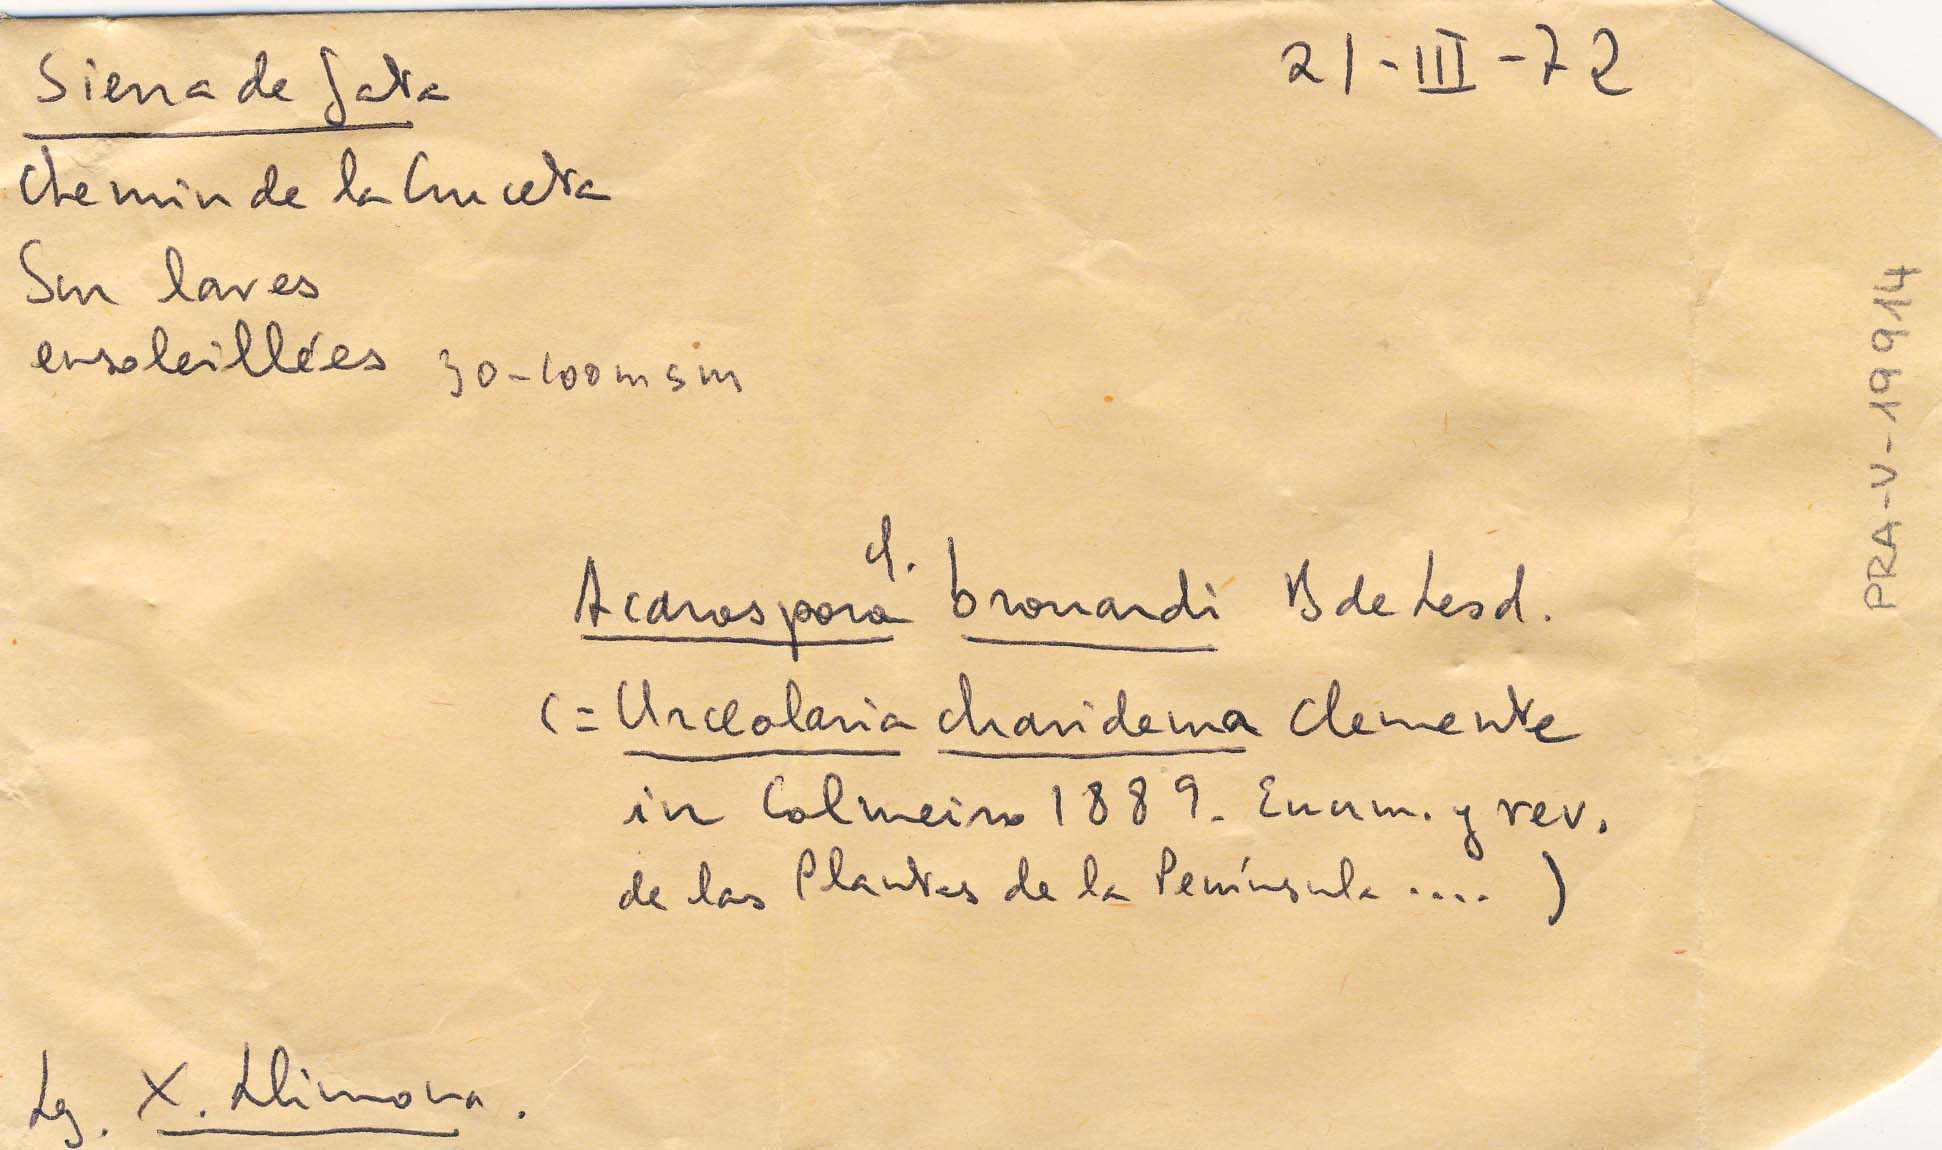 Sierra de Gata
21-III-72
Chemin de la Cruceta
Sur laves
ensoleillées 30-100 m s m
cf.
Acarospora brouardi B de Lesd.
(= Urceolaria charidema Clemente
in Colmeiro 1889. Enum. y rev.
de las Plantas de la Península .... )
Lg. X. Llimona.
PRA-V-19914